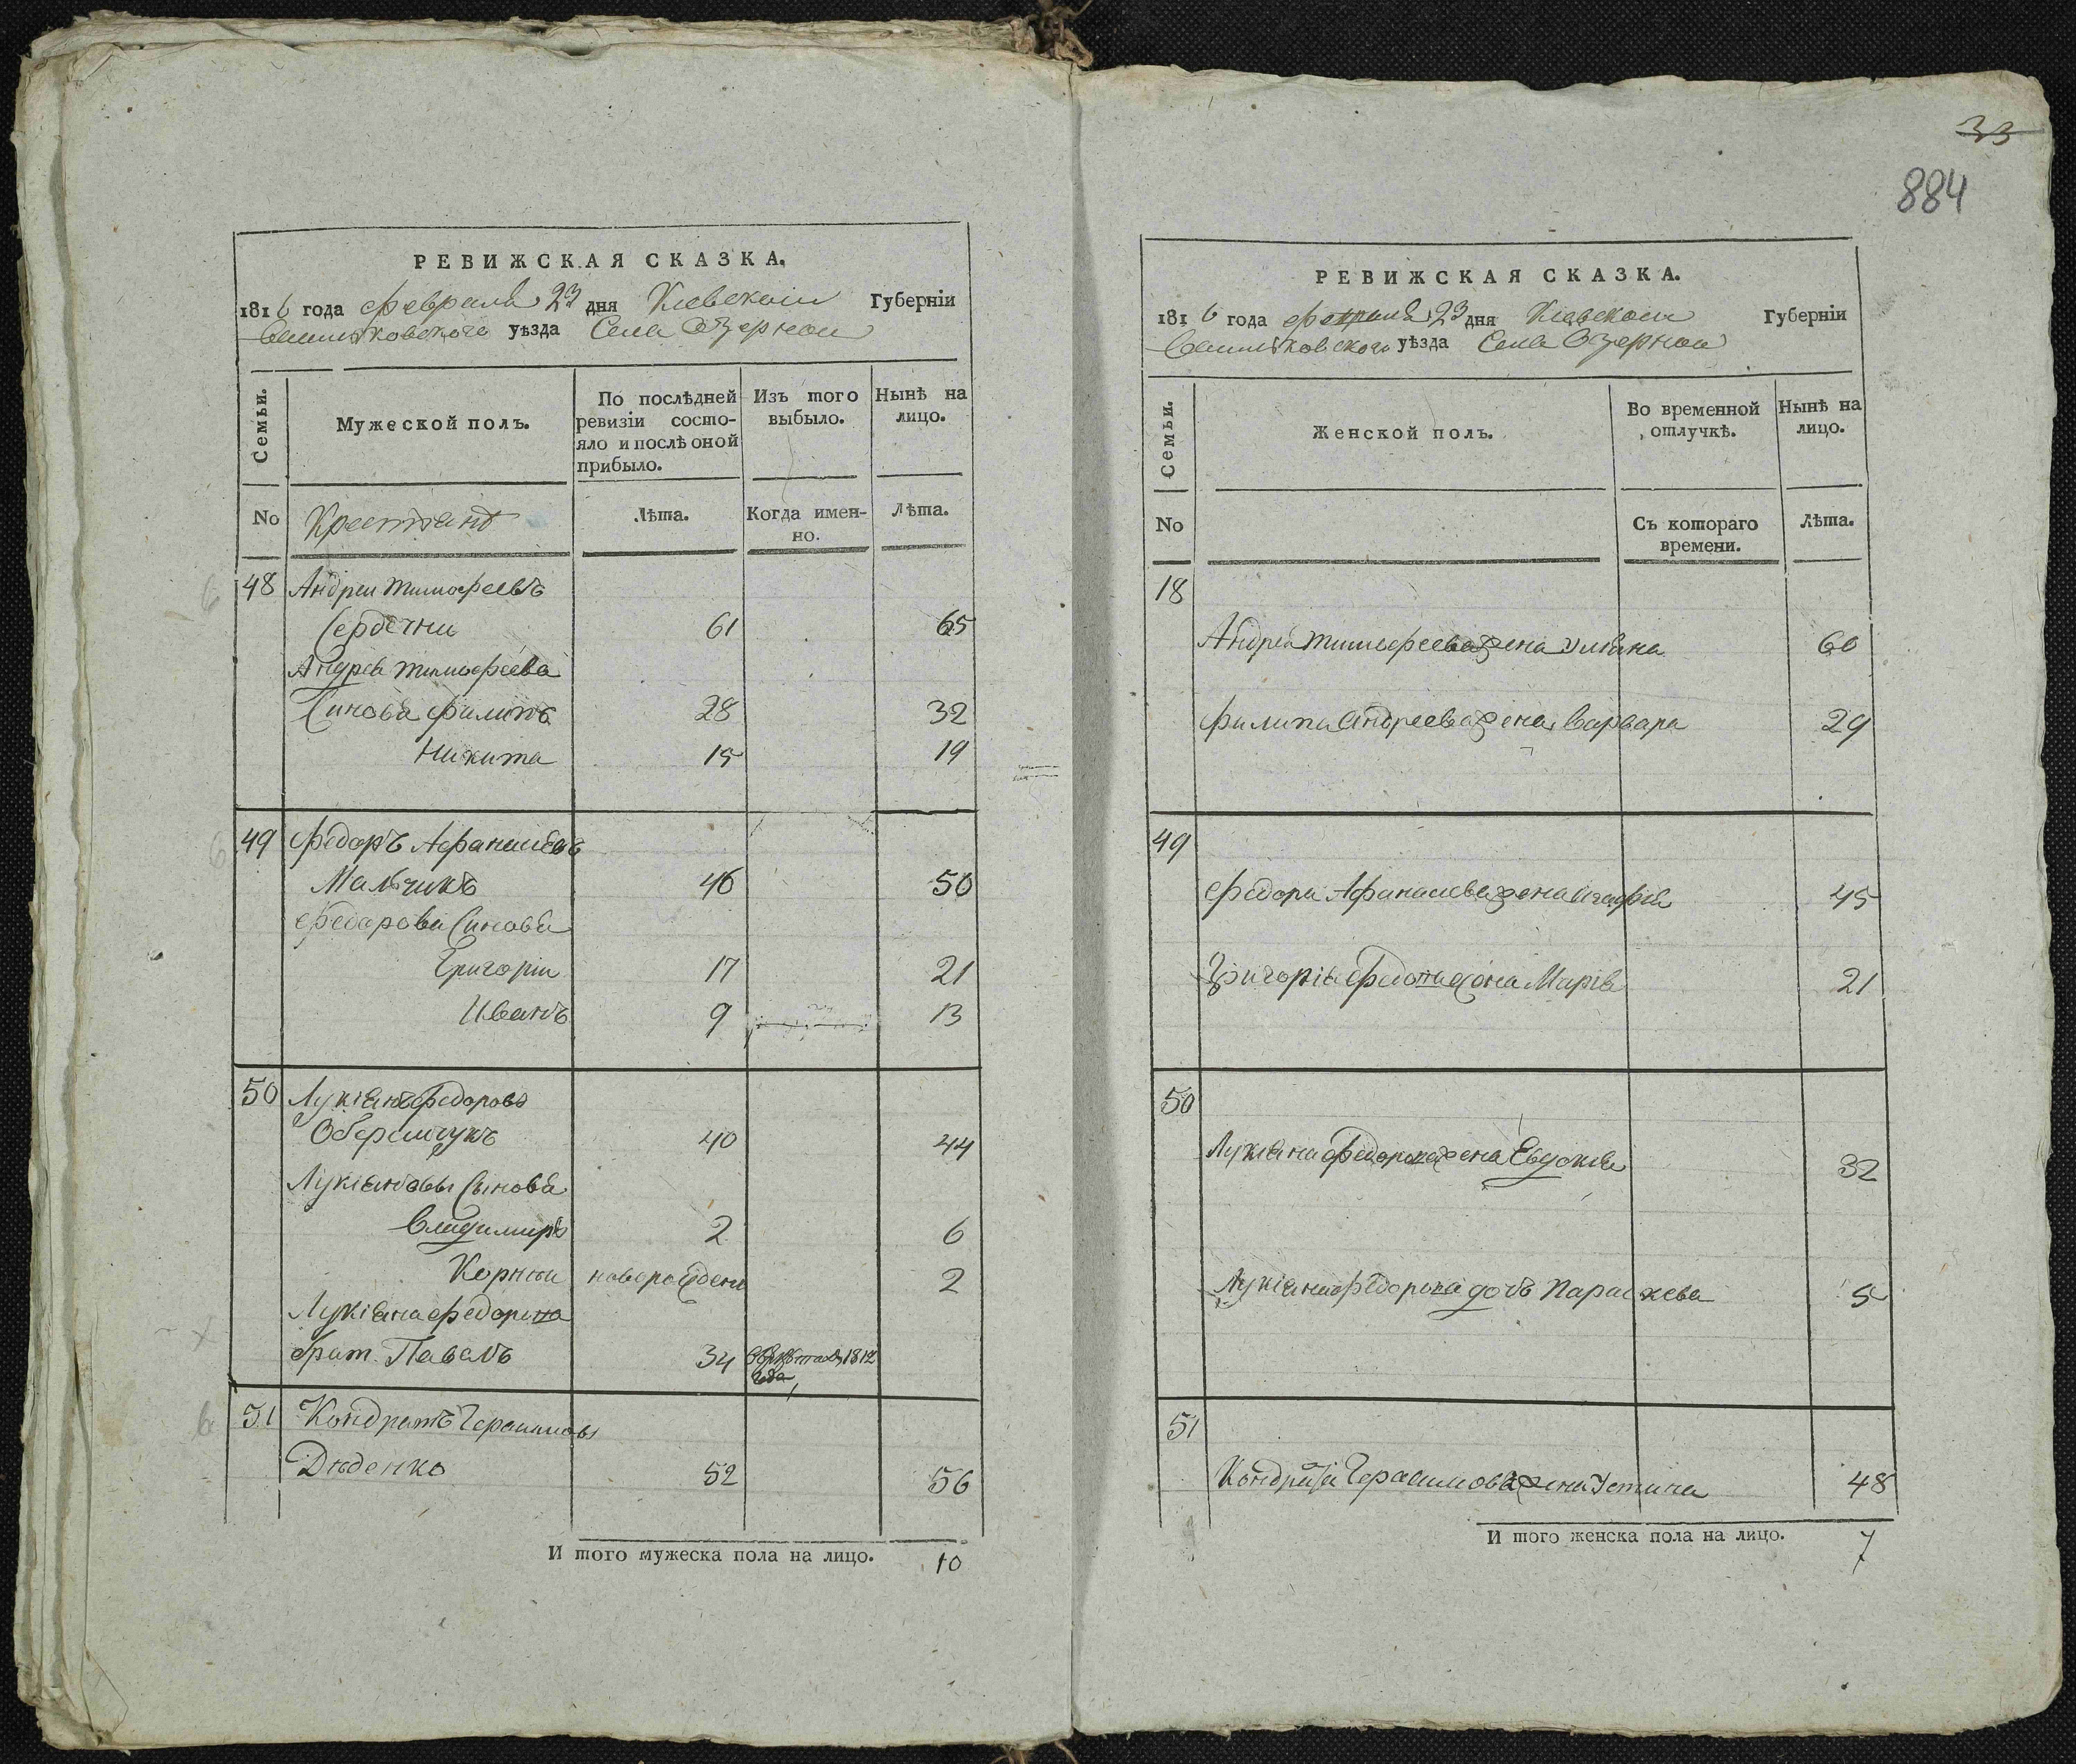 РЕВИЖСКАЯ СКАЗКА.
1816 года февраля 23 дня Киевской Губерніи
Васильковского уѣзда Села Озерной
Семьи.
Мужеской полъ.
По послѣдней ревизіи состо-
яло и послѣ оной
прибыло.
Изъ того
выбыло.
Нынѣ на
лицо.
No
Крестянъ
Лѣта.
Когда имен-
но.
Лѣта.
48 Андреи Тимофеевъ
Сердечни 61 65
Андрея Тимофеева
Синовя Филипъ 28 32
Никита 15 19
49 Федоръ Афанасіевъ
Мальчикъ 46 50
Федорова Синовя
Григоріи 17 21
Иванъ 9 13
50 Лукіянъ Федоровъ
Оберемчукъ 40 44
Лукіяновы Сыновя
Владимиръ 2 6
Корнеи новорожденъ 2
Лукіяна Федорова
братъ Павелъ 34 1812
года
51 Кондратъ Герасимовъ
Дяденко 52 56
И того мужеска пола на лицо. 10
33
884
РЕВИЖСКАЯ СКАЗКА.
1816 года февраля 23 дня Киевской Губерніи
Васильковского уѣзда Села Озерной
Семьи.
Женской полъ.
Во временной
отлучкѣ.
Нынѣ на
лицо.
No
Съ котораго
времени.
Лѣта.
18
Андрея Тимофеева жена Улияна 60
Филипа Андреева жена Варвара 29
49
Федора Афанасиева жена Агафія 45
Григорія Федорова жена Марія 21
50
Лукіяна Федорова жена Евдокія 32
Лукіяна Федорова дочь Параскева 5
51
Кондрата Герасимова жена Устина 48
И того женска пола на лицо. 7